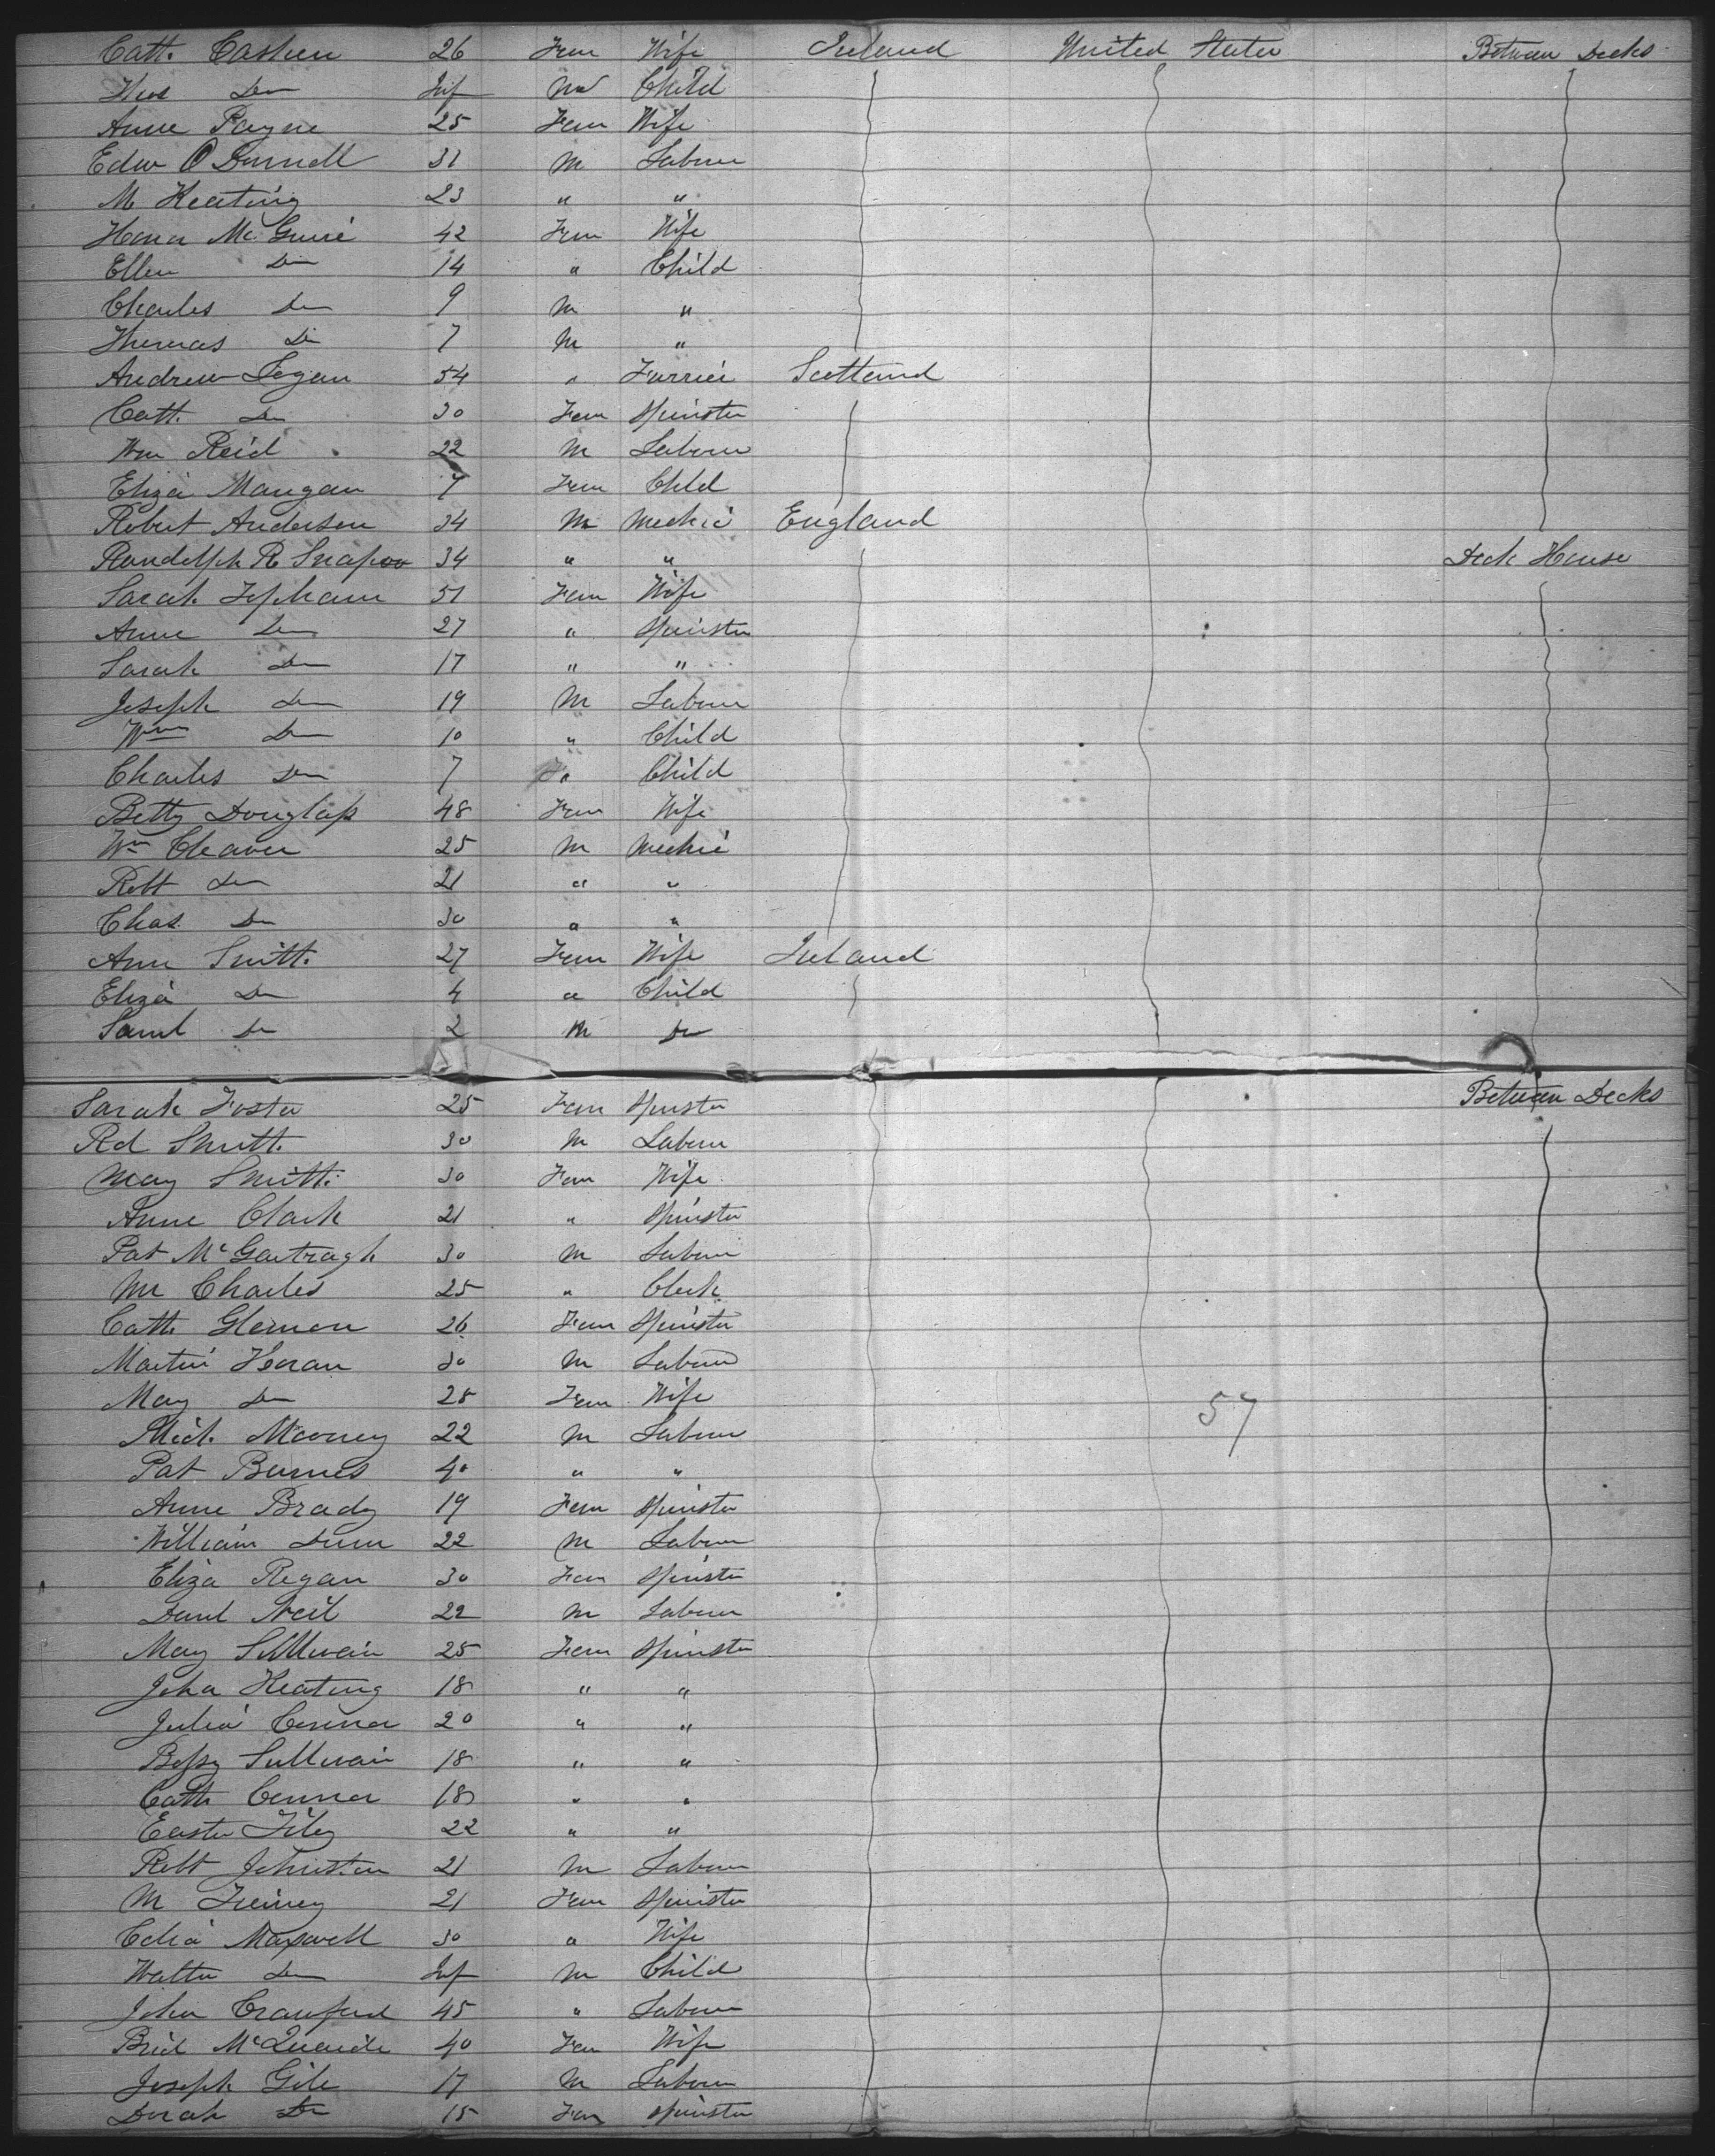 Cath. Cashen 26 Fem Wife Ireland United States Between Decks
Do Inf M Child
Anne Payne 25 Fem Wife
Edw O Donnell 31 M Labour
M Keating 23 " "
Honor Mc Guire 42 Fem Wife
Ellen Do 14 " Child
Charles Do 9 M "
Thomas Do 7 M "
Andrew Logan 54 " Farrier Scotland
Cath. Do 30 Fem Spinster
Wm Reid 22 M Labour
Eliza Mangan 7 Fem Child
Robert Anderson 34 M Mechic England
Randolph R 34 " " Deck House
Sarah 51 Fem Wife
Anne Do 27 " Spinster
Sarah Do 17 " "
Joseph Do 19 M Labour
Wm Do 10 " Child
Charles Do 7 Child
Betty Douglass 48 Fem Wife
Wm Cleaver 25 M Mechic
Robt Do 21 " "
Chas. Do 30 " "
Ann Smith 27 Fem Wife Ireland
Eliza Do 4 " Child
Saml Do 2 M Do
Sarah Foster 25 Fem Spinster Between Decks
Rd Smith 30 M Labour
Mary Smith 30 Fem Wife
Anne Clark 21 " Spinster
Pat McGartragh 30 M Labour
M Charles 25 " Clerk
Cath Glennon 26 Fem Spinster
Martin Horan 30 M Labour
Mary Do 28 Fem Wife
57
Mich. Mooney 22 M Labour
Pat Burnes 40 " "
Anne Brady 19 Fem Spinster
William Dunn 22 M Labour
Eliza Regan 30 Fem Spinster
Danl Neil 22 M Labour
Mary Sullivan 25 Fem Spinster
Joha Keating 18 " "
Julia Connor 20 " "
Bessy Sullivan 18 " "
Cath Connor 18 " "
Easter 22 " "
Robt Johnston 21 M Labour
M 21 Fem Spinster
Celia Maxwell 30 " Wife
Walter Do Inf M Child
John Crawford 45 " Labour
Brid McQuaide 40 Fem Wife
Joseph Gile 17 M Labour
Dorah Do 15 Fem Spinster